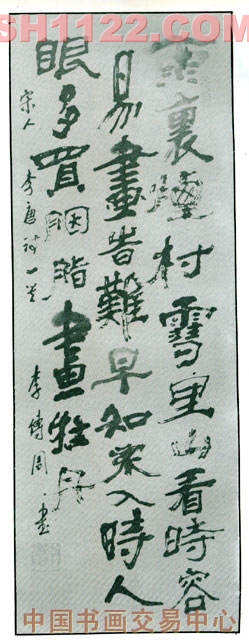 SH1122.com
雲裏煙村雪里山看時容
易畫旹難早知不入時人
眼多買胭脂畫牡丹
宋人李唐詩一首
李傳周書
中国书画交易中心